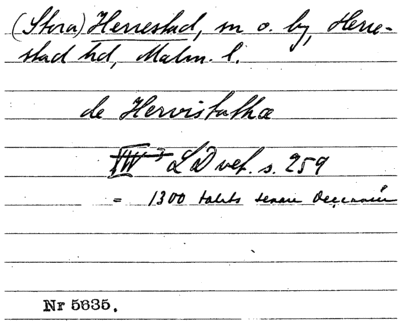 (Stora) Herrestad, sn o. by, Herre-
stad hd, Malm. l.
de Hervistathæ
LD vet. s. 259
= 1300 talets senare decennier
Nr 5635.